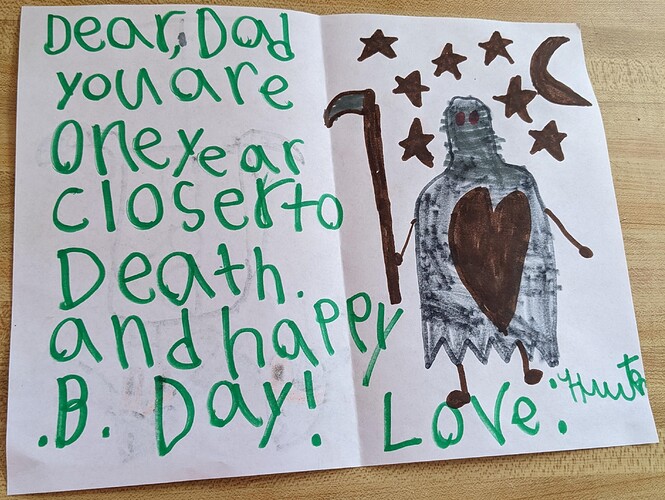 Dear, Dad
you are
one year
closer to
Death.
and happy
.B. Day!
Love.